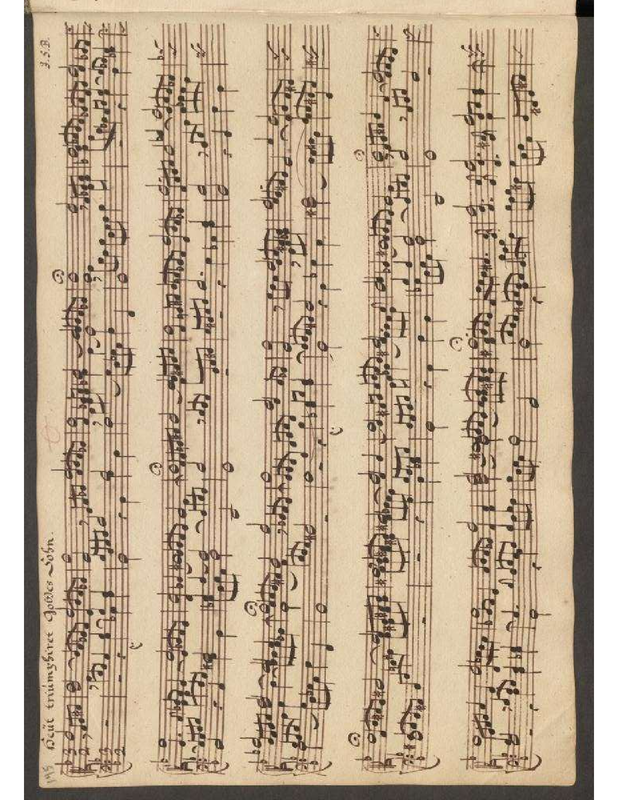 Heüt triümphiret Gottes Sohn.
J. S. B.
195
3
2
3
2